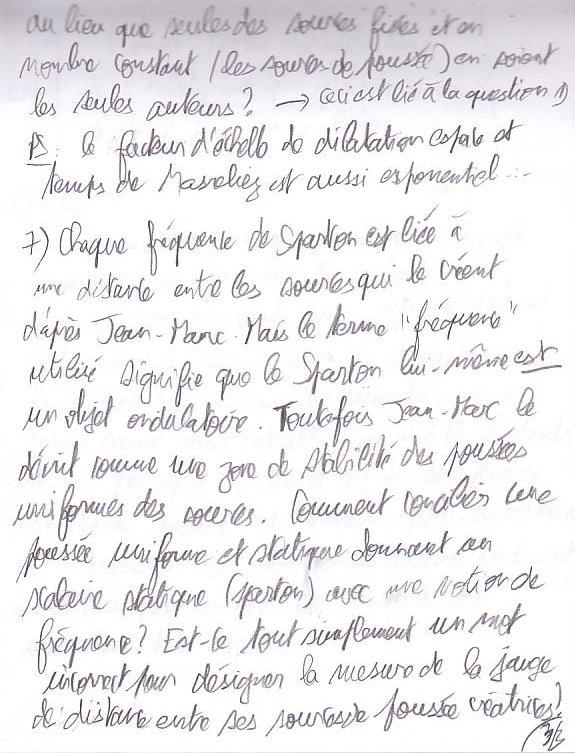 au lieu que seules des sources fixes et en
nombre constant (les sources de poussée) en soient
les seules auteurs? → ceci est lié à la question 1)
PS: le facteur d'échelle de dilatation espace et
temps de Masreliez est aussi exponentiel...
7) Chaque fréquence de Sparton est liée à
une distance entre les sources qui le créent
d'après Jean-Marc. Mais le terme "fréquence"
utilisé signifie que le Sparton lui-même est
un objet ondulatoire. Toutefois Jean-Marc le
décrit comme une zone de stabilité des poussées
uniformes des sources. Comment concilier une
poussée uniforme et statique donnant un
scalaire statique (sparton) avec une notion de
fréquence? Est-ce tout simplement un mot
incorrect pour désigner la mesure de la jauge
de distance entre ses sources de poussée créatrices?